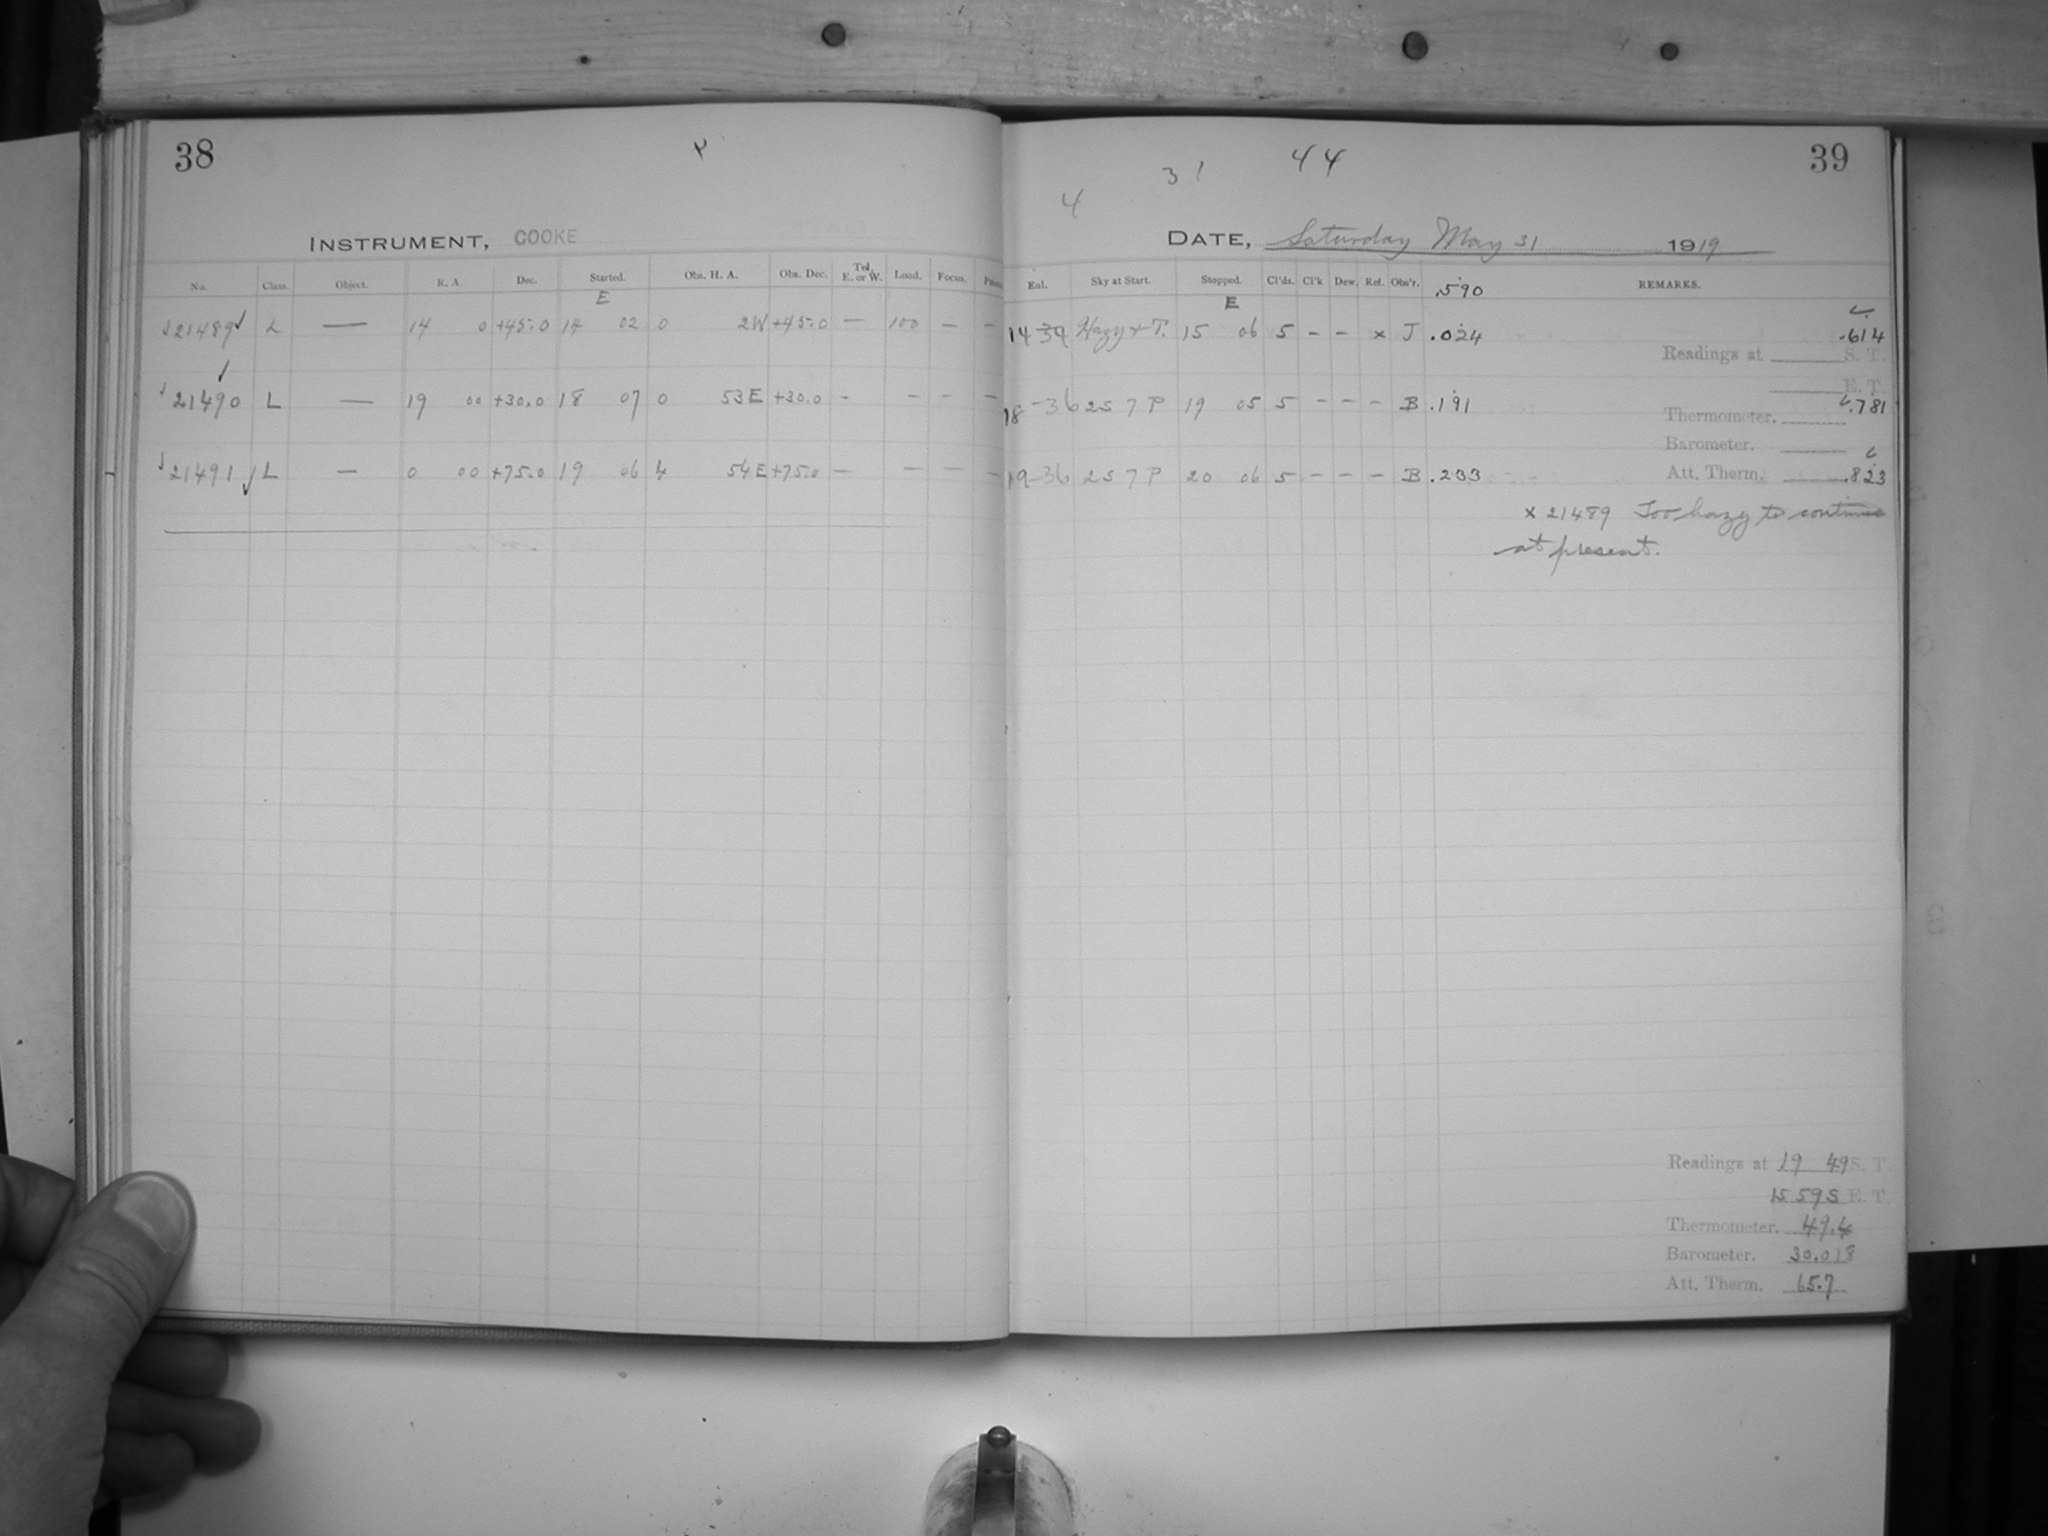 38
INSTRUMENT, COOKE
No. Class. Object. R. A. Dec. Started. Obs. H. A. Obs. Dec. Tel. E. or W. Load. Focus.
E
21489 L — 14 0 +45.0 14 02 0 2W +45.0 — 100 — —
21490 L — 19 00 +30.0 18 07 0 53E +30.0 - - - -
21491 L — 0 00 +75.0 19 06 4 54E +75.0 — — — —
39
4 31 44
DATE, Saturday May 31 1919
Eal. Sky at Start. Stopped. Cl'ds. Cl'k Dew. Ref. Obs'r. .590 REMARKS.
E
14-34 Hazy + T. 15 06 5 - - x J .024 .614
Readings at S. T.
E. T.
18-36 2S 7 P 19 05 5 - - - B .191 .781
Thermometer.
Barometer.
19-36 2S 7 P 20 06 5 - - - B .233 Att. Therm. .823
x 21489 Too hazy to continue
at present.
Readings at 19 49 S. T.
15 59 S E. T.
Thermometer. 49.4
Barometer. 30.018
Att. Therm. 65.7